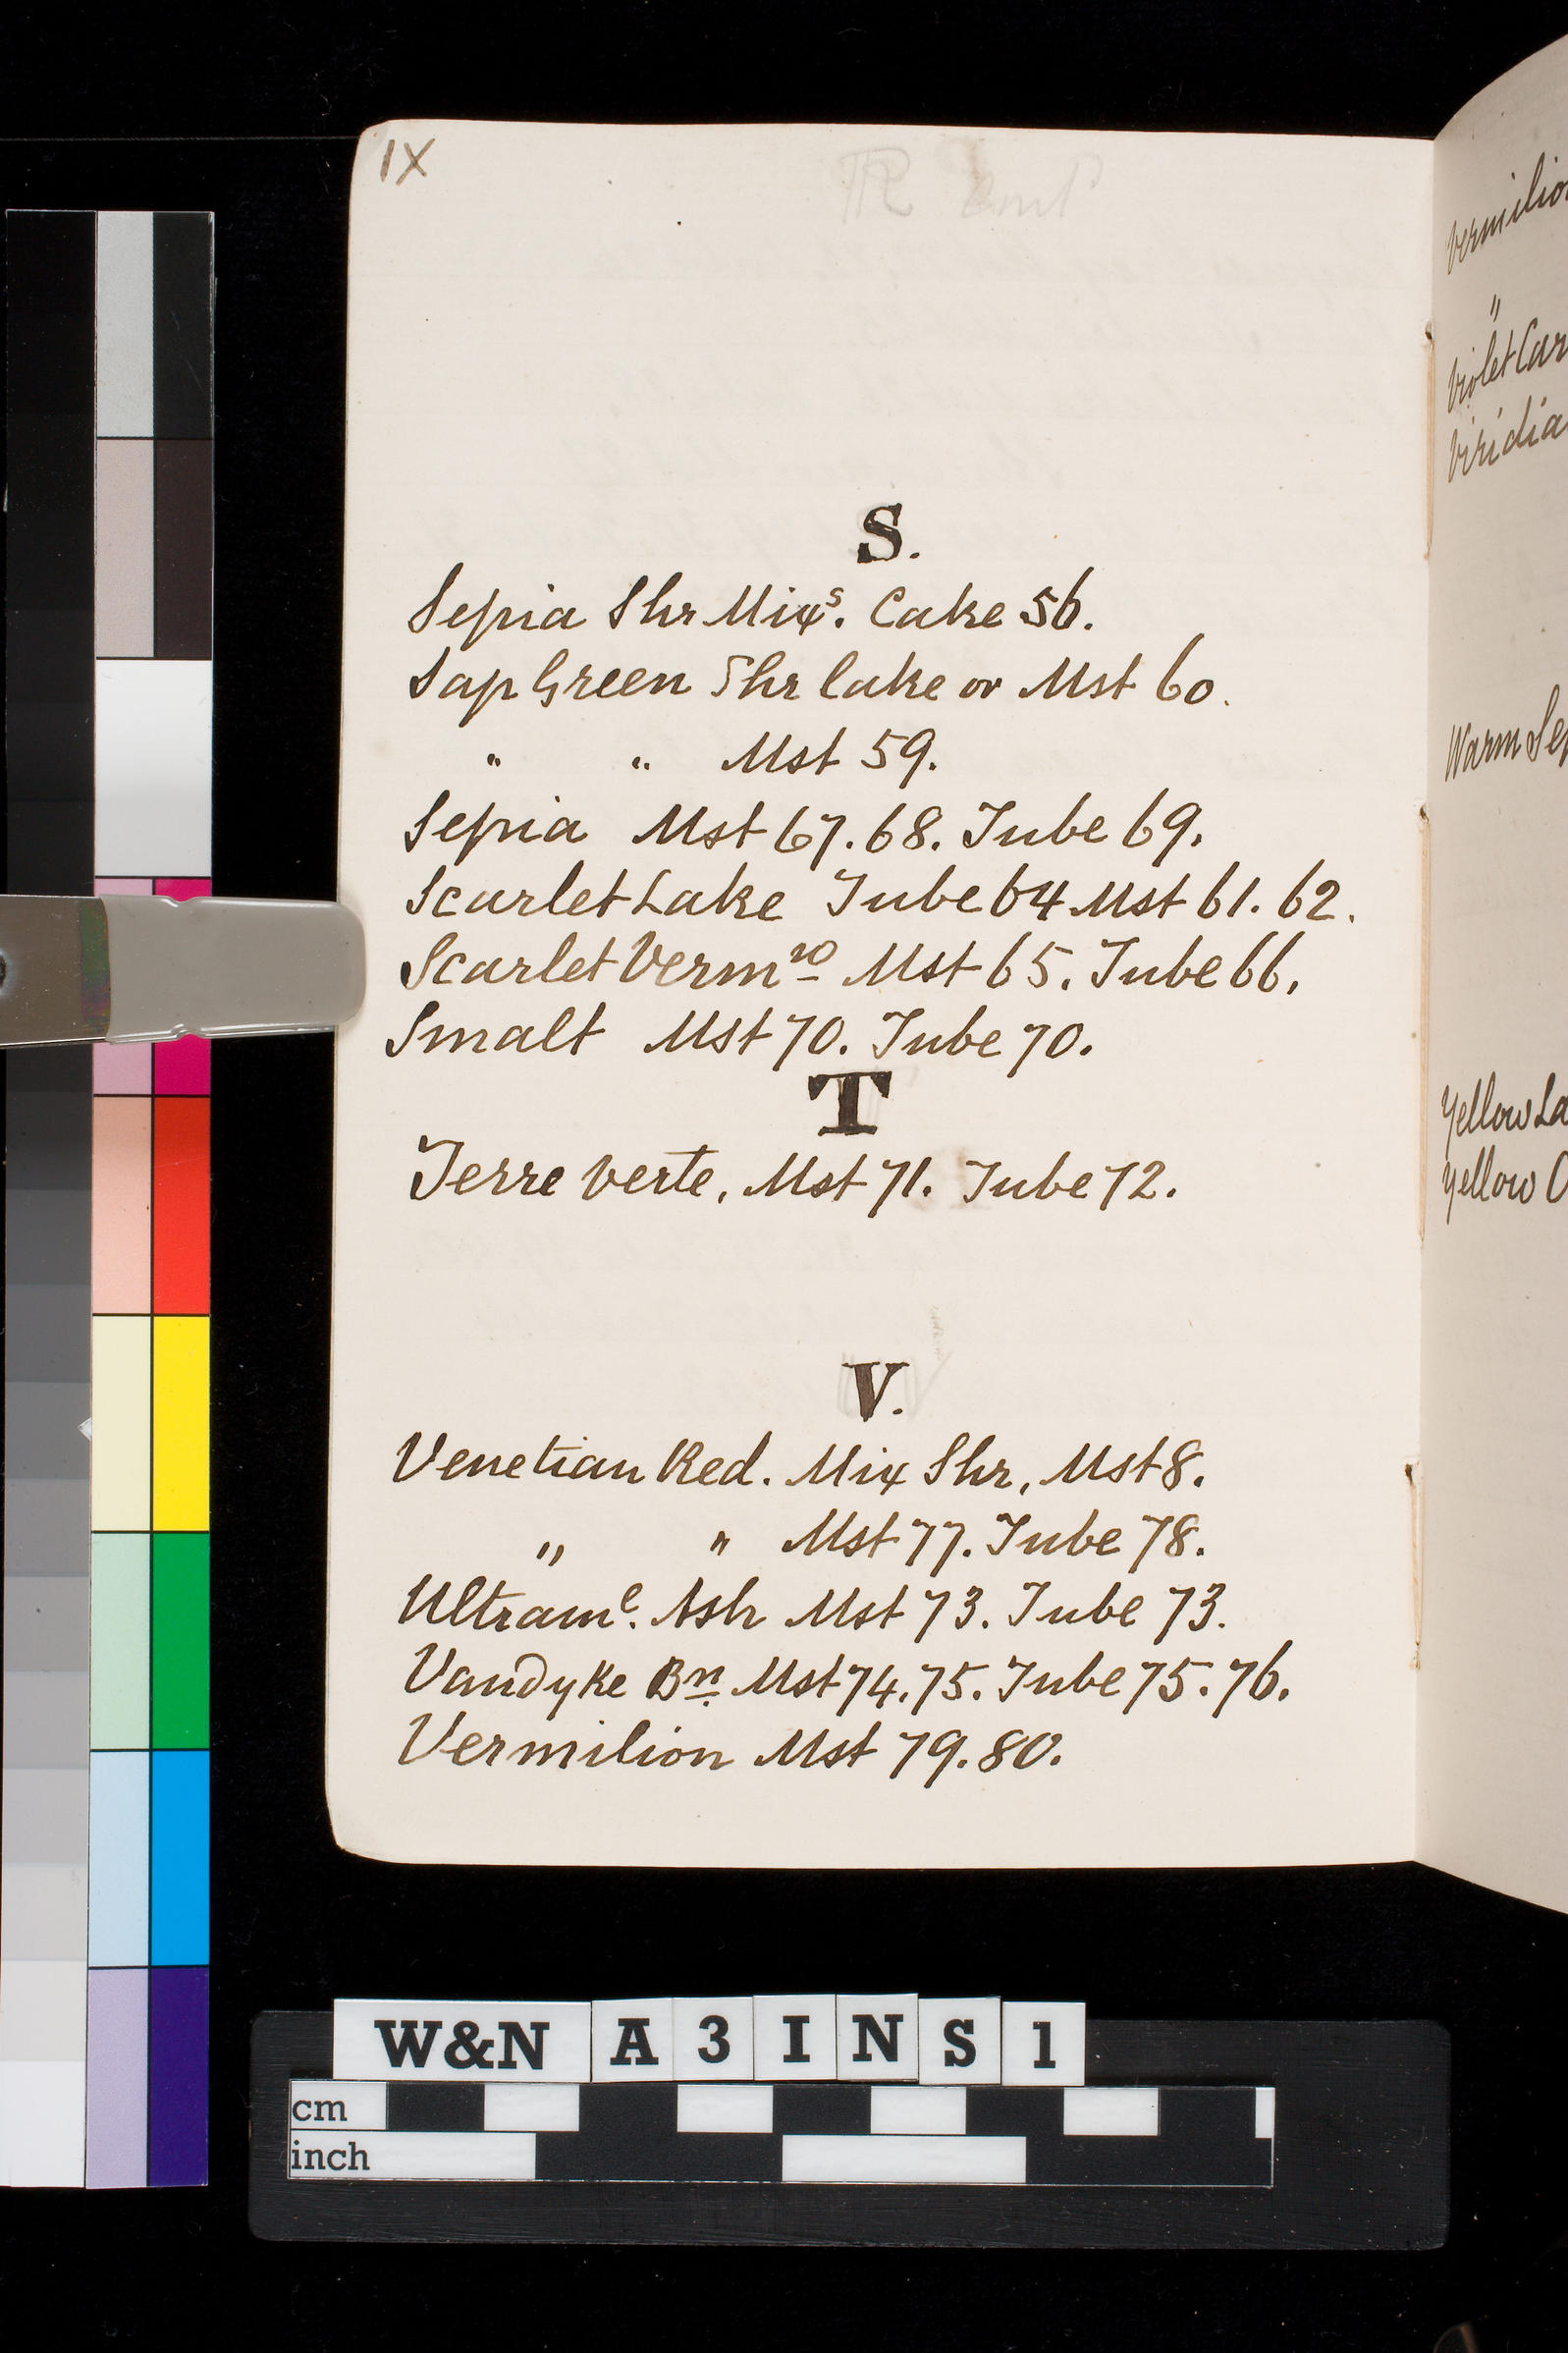 IX
S.
Sepia Shr Mixs. Cake 56.
Sap Green Shr Cake or Mst 60.
" " Mst 59.
Sepia Mst 67. 68. Tube 69.
Scarlet Lake Tube 64 Mst 61. 62.
Scarlet Vermn Mst 65. Tube 66.
Smalt Mst 70. Tube 70.
T
Terre Verte, Mst 71. Tube 72.
V.
Venetian Red. Mix Shr, Mst 8.
" " Mst 77. Tube 78.
Ultrame. Ash Mst 73. Tube 73.
Vandyke Bn Mst 74. 75. Tube 75. 76.
Vermilion Mst 79. 80.
Vermilio
"
Violet Car
Viridia
Warm Sep
Yellow La
Yellow O
W&N A 3 I N S 1
cm
inch